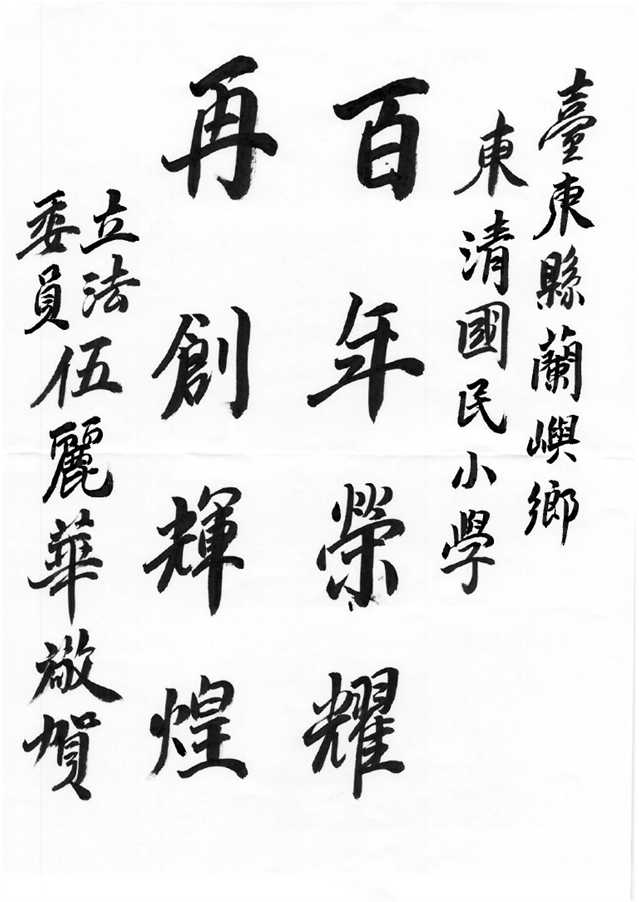 臺東縣蘭嶼鄉
東清國民小學
百年榮耀
再創輝煌
立法
委員
伍麗華敬賀